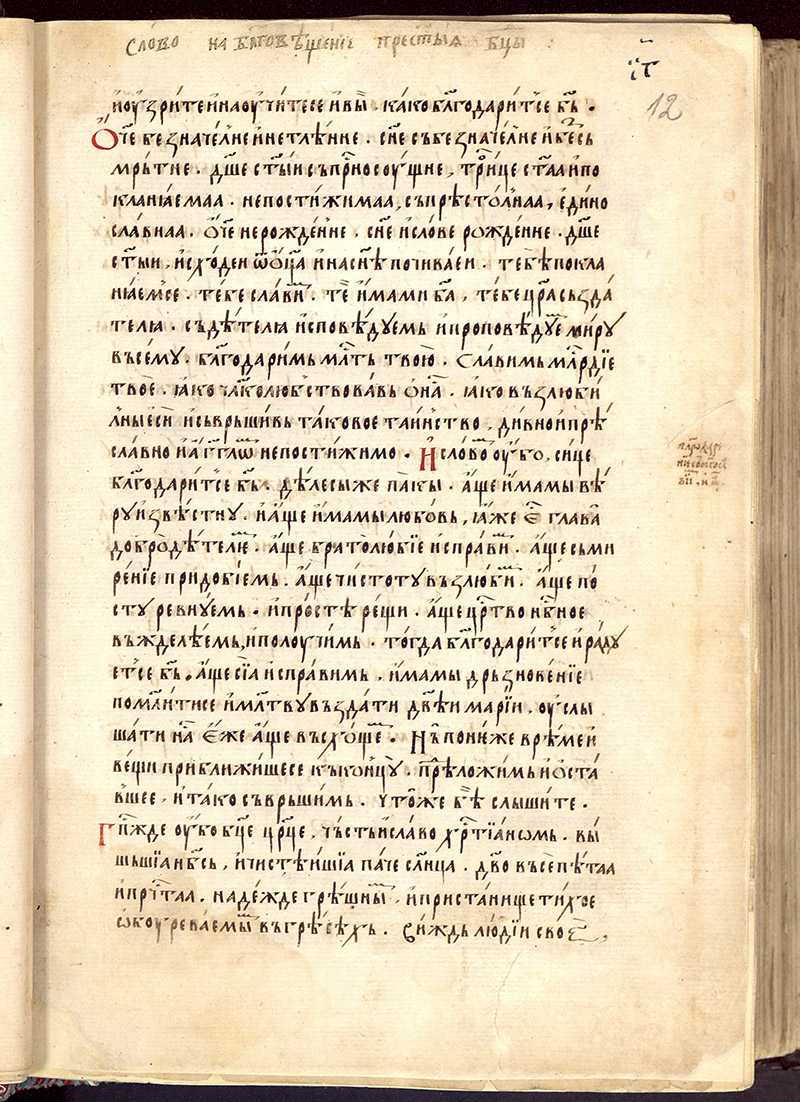 слово на бл҃говѣщенїе прест҃ыѧ бц҃ы
і҃г
12
и оузрите и наоучитесе и вы . како бл҃годарит'се бь҃ .
Ѻч҃е безначел'не и нетлѣнне . сн҃е събезначел'не и вьсь
мрьтне . дш҃е ст҃ыи съпр҃носоущне , трⷪ҇ице ст҃аа и по
кланꙗемаа . непостижимаа, съпрѣстолнаа, едино
славнаа . ѻч҃е нерожденне . сн҃е и слове рожденне . дш҃е
ст҃ыи , исходеи ѿ ѻц҃а и на сн҃ѣ почиваеи . тебѣ покла
нꙗем'се . тебе славим . те имамы ба҃ , тебе цр҃а създа
телꙗ . съдѣтелꙗ исповѣдуемь и проповѣдуем миру
въсему . бл҃годаримь млⷭ҇ть твою . Славимь млⷭ҇рдїе
твое . ꙗко чл҃колюбствовавь ѻ на . ꙗко възлюби
лныи еси и съврьшивь таковое таинство , дивно и прѣ
славно и агг҃лѡм непостижимо . И словом оубо, сице
бл҃годарит'се бь҃ . дѣлесы же пакы . аще имамы вѣ
ру извѣстну . и аще имамы любовь , ꙗже еⷭ҇ глава
добродѣтелем . аще братолюбїе исправим . аще съми
ренїе придобїемь . аще чистоту възлюбим . аще по
сту ревнуемь . и простѣ рещи . аще црⷭ҇тво нбⷭ҇ное
въжделѣемь, и полоучимь . тогда бл҃годарит'се и раду
ет'се бь҃ . аще сїа исправимь , имамы дрьзновенїе
помлитисе и млт҃ву въздати дв҃ѣи марїи . оуслы
шати на еже аще въсхощем . Нь понеже врѣме и
вещи приближишесе къ концу . прѣложимь и оста
вшее , и тако съврьшимь . что же бѣ слышите .
Гпⷭ҇жде оубо бц҃е цр҃це , чьсть и слво хрⷭ҇тїаномь . вы
шьшїа нбⷭ҇ь , и чистѣишїа паче слнца . дв҃о въсепѣтаа
и прчⷭ҇таа . надежде грѣшным , и пристанище тихое
ѡкоуреваемым въ грѣсѣхь . виждь людїи свое ,